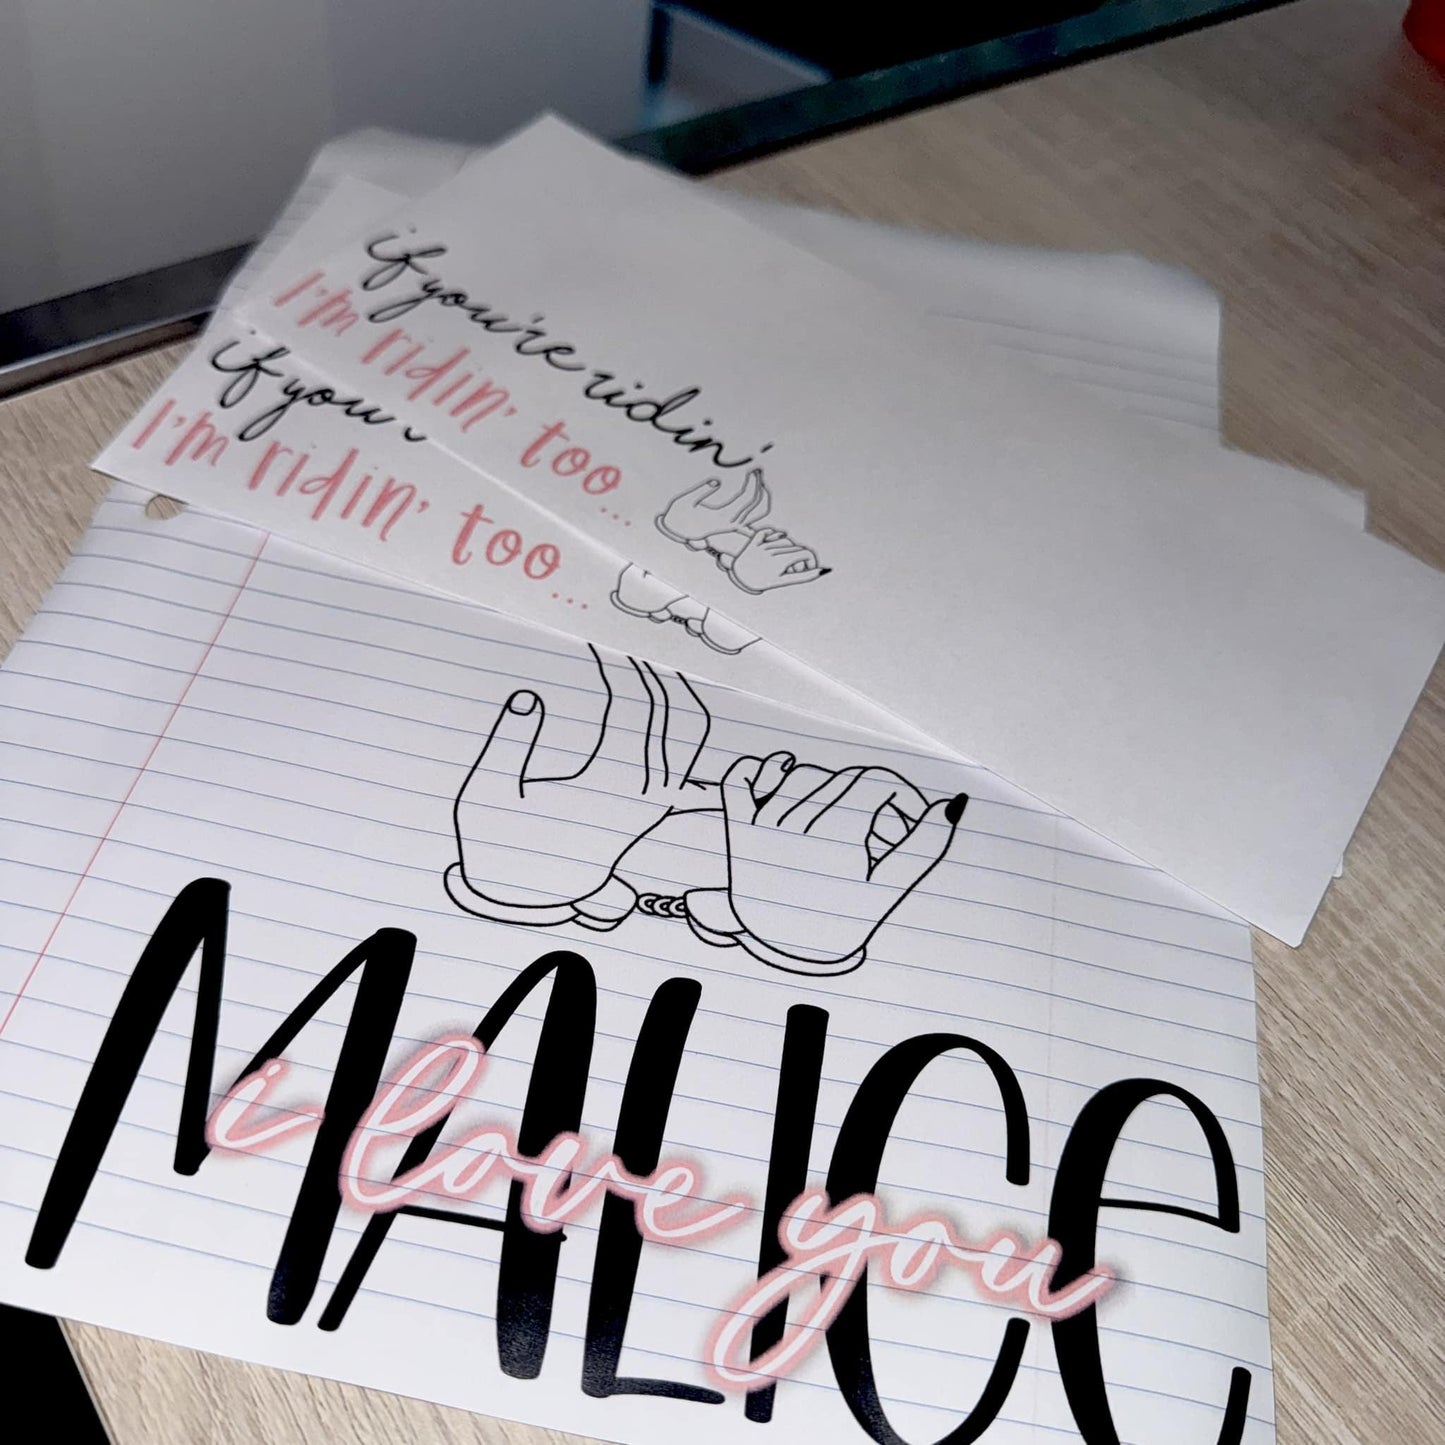 if you're ridin'
I'm ridin' too...
if you
I'm ridin' too...
MALICe
i love you